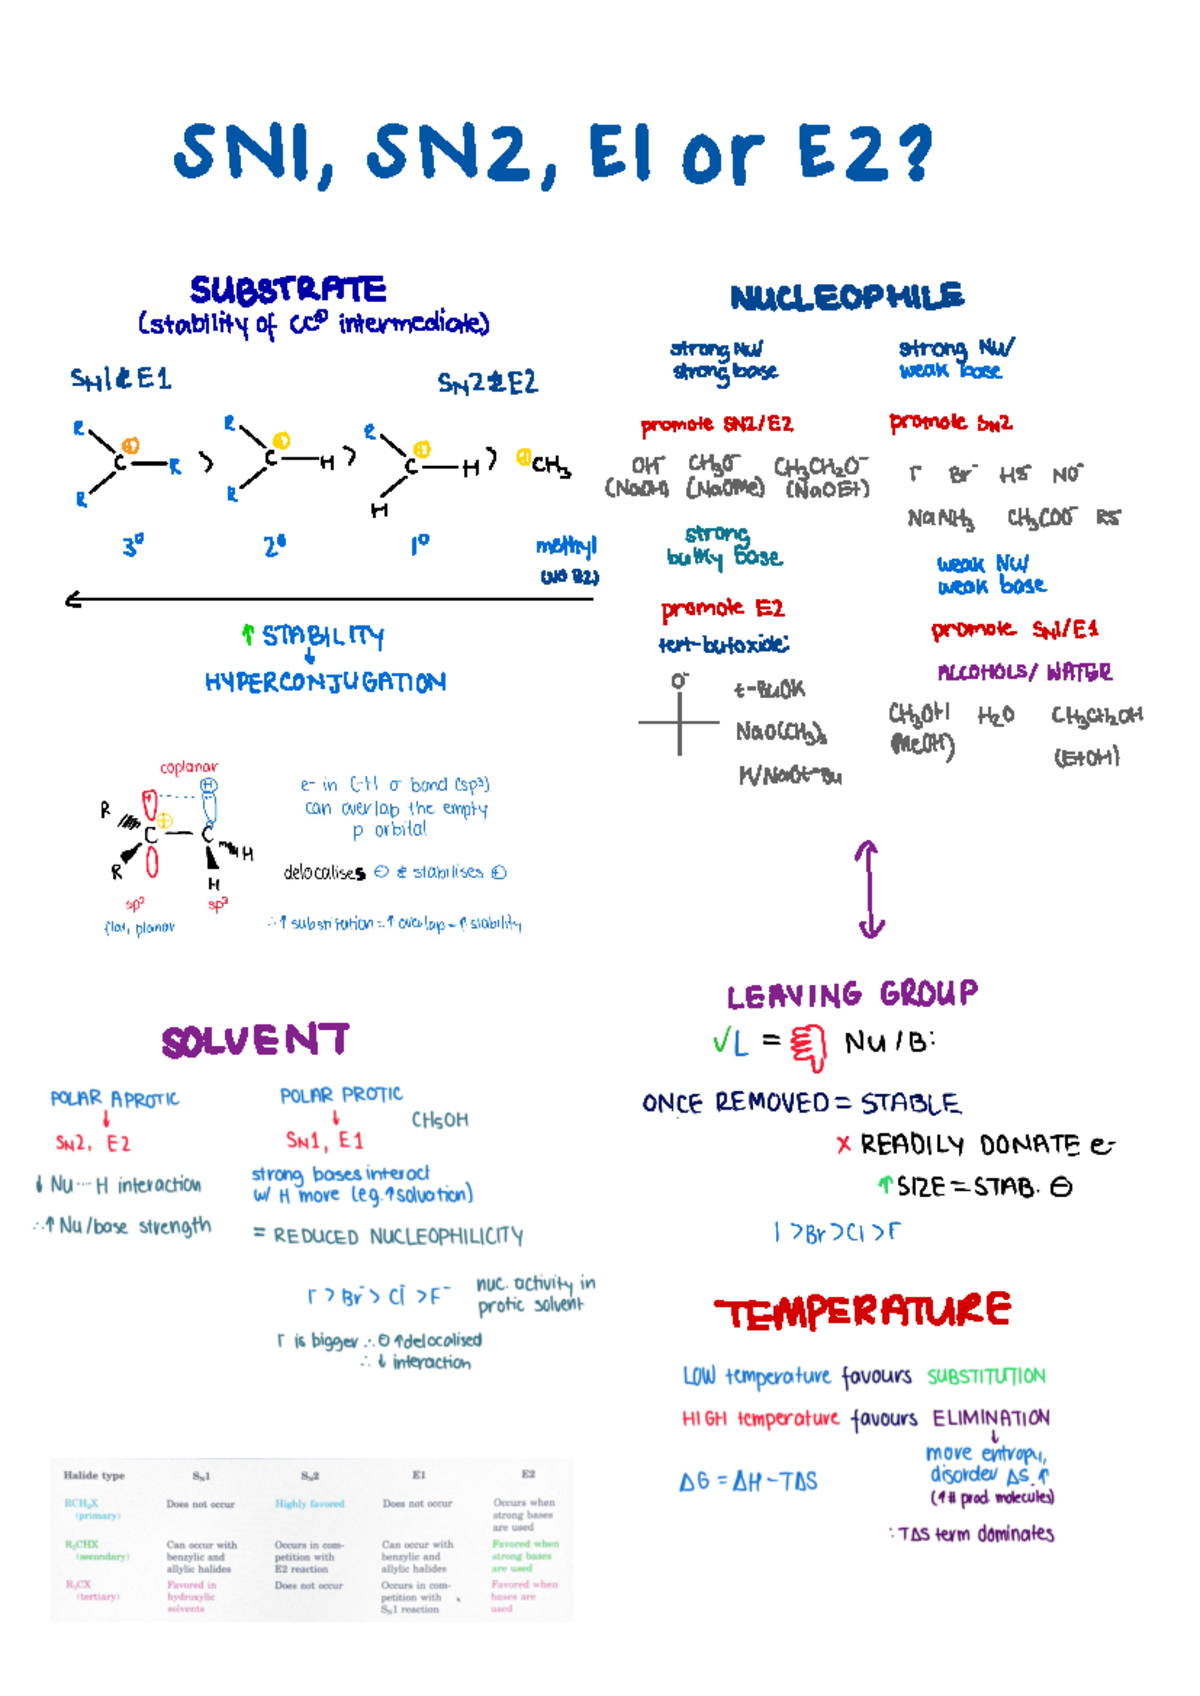 SN1, SN2, E1 or E2?
SUBSTRATE
(stability of CC⊕ intermediate)
SN1 & E1
SN2 & E2
R
R
R
C
⊕
>
R
R
C
⊕
H
>
R
H
C
⊕
H
>
⊕CH₃
3°
2°
1°
methyl
(NO E2)
↑ STABILITY
↓
HYPERCONJUGATION
coplanar
H
R
R
C
⊕
C
H
H
sp²
sp³
flat, planar
e- in C-H σ bond (sp³)
can overlap the empty
p orbital
delocalises ⊖ & stabilises ⊕
∴ ↑ substitution = ↑ overlap = ↑ stability
NUCLEOPHILE
strong Nu/
strong base
promote SN2/E2
OH⁻ CH₃O⁻ CH₃CH₂O⁻
(NaOH) (NaOMe) (NaOEt)
strong
bulky base
promote E2
tert-butoxide:
O⁻
t-BuOK
NaO(CH₃)₃
K/NaOt-Bu
strong Nu/
weak base
promote SN2
I⁻ Br⁻ HS⁻ NO⁻
NaNH₃ CH₃COO⁻ RS⁻
weak Nu/
weak base
promote SN1/E1
ALCOHOLS/ WATER
CH₃OH H₂O CH₃CH₂OH
(MeOH) (EtOH)
LEAVING GROUP
√L = Nu/B:
ONCE REMOVED = STABLE
x READILY DONATE e-
↑ SIZE = STAB. ⊖
I > Br > Cl > F
SOLVENT
POLAR APROTIC
↓
SN2, E2
↓ Nu---H interaction
∴ ↑ Nu/base strength
POLAR PROTIC
↓ CH₃OH
SN1, E1
strong bases interact
w/ H more (eg. ↑ solvation)
= REDUCED NUCLEOPHILICITY
I⁻ > Br⁻ > Cl⁻ > F⁻
nuc. activity in
protic solvent
I⁻ is bigger ∴ ⊖ ↑ delocalised
∴ ↓ interaction
TEMPERATURE
LOW temperature favours SUBSTITUTION
HIGH temperature favours ELIMINATION
↓
more entropy,
disorder ΔS ↑
(↑# prod. molecules)
ΔG = ΔH - TΔS
: TΔS term dominates
Halide type SN1 SN2 E1 E2
RCH₂X (primary) Does not occur Highly favored Does not occur Occurs when strong bases are used
R₂CHX (secondary) Can occur with benzylic and allylic halides Occurs in competition with E2 reaction Can occur with benzylic and allylic halides Favored when strong bases are used
R₃CX (tertiary) Favored in hydroxylic solvents Does not occur Occurs in competition with SN1 reaction Favored when bases are used